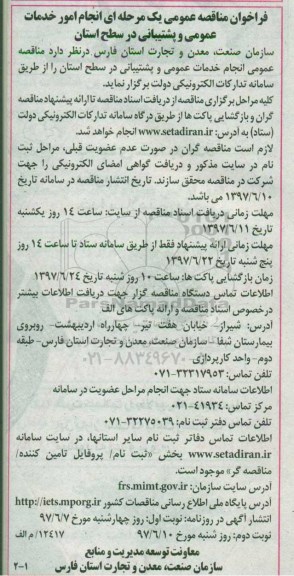 فراخوان مناقصه عمومی یک مرحله ای انجام امور خدمات
عمومی و پشتیبانی در سطح استان
سازمان صنعت، معدن و تجارت استان فارس درنظر دارد مناقصه
عمومی انجام خدمات عمومی و پشتیبانی در سطح استان را از طریق
سامانه تدارکات الکترونیکی دولت برگزار نماید.
کلیه مراحل برگزاری مناقصه از دریافت اسناد مناقصه تا ارائه پیشنهاد مناقصه
گران و بازگشایی پاکت ها از طریق درگاه سامانه تدارکات الکترونیکی دولت
(ستاد) به آدرس: www.setadiran.ir انجام خواهد شد.
لازم است مناقصه گران در صورت عدم عضویت قبلی، مراحل ثبت
نام در سایت مذکور و دریافت گواهی امضای الکترونیکی را جهت
شرکت در مناقصه محقق سازند. تاریخ انتشار مناقصه در سامانه تاریخ
۱۳۹۷/۶/۱۰ می باشد.
مهلت زمانی دریافت اسناد مناقصه از سایت: ساعت ۱۴ روز یکشنبه
تاریخ ۱۳۹۷/۶/۱۱
مهلت زمانی ارائه پیشنهاد فقط از طریق سامانه ستاد تا ساعت ۱۴ روز
پنج شنبه تاریخ ۱۳۹۷/۶/۲۲
زمان بازگشایی پاکت ها: ساعت ۱۰ روز شنبه تاریخ ۱۳۹۷/۶/۲۴
اطلاعات تماس دستگاه مناقصه گزار جهت دریافت اطلاعات بیشتر
درخصوص اسناد مناقصه و ارائه پاکت های الف
آدرس: شیراز- خیابان هفت تیر- چهارراه اردیبهشت- روبروی
بیمارستان شفا - سازمان صنعت، معدن و تجارت استان فارس- طبقه
دوم- واحد کارپردازی
تلفن تماس: ۳۲۳۱۷۹۵۳-۰۷۱
اطلاعات سامانه ستاد جهت انجام مراحل عضویت در سامانه
مرکز تماس: ۴۱۹۳۴-۰۲۱
تلفن تماس دفتر ثبت نام: ۳۲۲۷۵۰۳۹-۰۷۱
اطلاعات تماس دفاتر ثبت نام سایر استانها، در سایت سامانه
www.setadiran.ir بخش «ثبت نام/ پروفایل تامین کننده/
مناقصه گر» موجود است.
آدرس سایت سازمان: frs.mimt.gov.ir
آدرس پایگاه ملی اطلاع رسانی مناقصات کشور http://iets.mporg.ir
انتشار آگهی در روزنامه: نوبت اول: روز چهارشنبه مورخ ۹۷/۶/۷
نوبت دوم: روز شنبه مورخ ۹۷/۶/۱۰ ۱۲۴۱۷/ م الف
معاونت توسعه مدیریت و منابع
سازمان صنعت، معدن و تجارت استان فارس
۲-۱
۰۲۱-۸۸۳۴۹۶۷۰